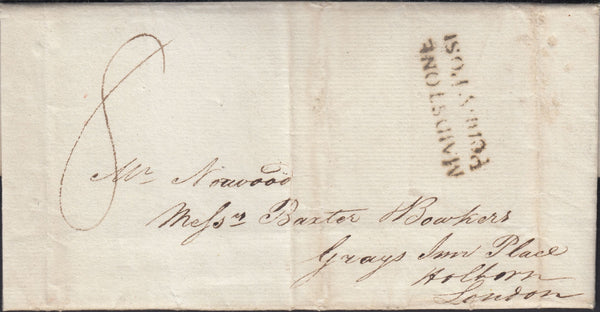 8
MAIDSTONE
Penny Post
Mr Norwood
Messrs Baxter & Bowkers
Grays Inn Place
Holborn
London